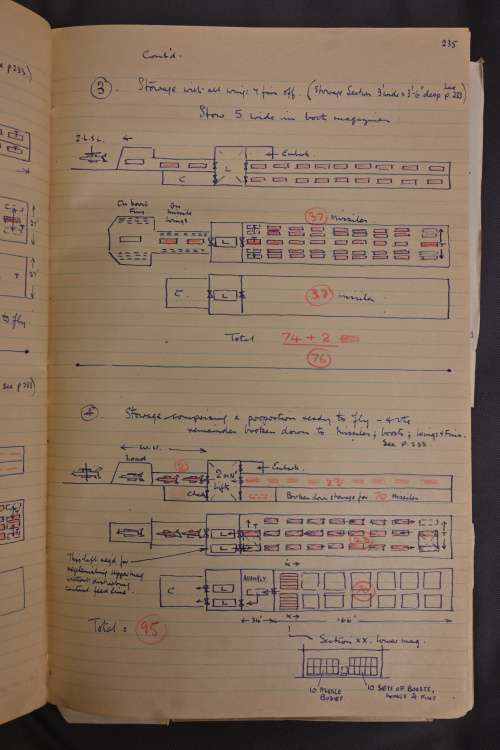 235
Cont'd.
(3). Stowage with all wings & fins off. (Stowage Section 3' wide x 3'-6" deep See p.233)
Stow 5 wide in both magazines
Z.L.S.L.
Embark
L
C
T
On boost Fins
On missile wings
(37) Missiles.
L
T
C
L
(37) missiles
Total 74 + 2
(76)
(4). Stowage comprising a proportion ready to fly - & the
remainder broken down to Missiles; boosts; wings & Fins.
See p. 233.
W.U.
Load
(2)
2 in No
Lifts
Embark
23
Check
Broken down stowage for 70 missiles
L
L
T
23
This lift req'd for
replenishing upper mag
without disturbing
central feed line.
C
L
L
ASSEMBLY
x
70
x
34'
166'
Total = (95)
Section XX. lower mag.
10 MISSILE
BODIES
10 SETS OF BOOSTS,
WINGS & FINS
see p 233)
27'
T
27'
to fly.
see p 233)